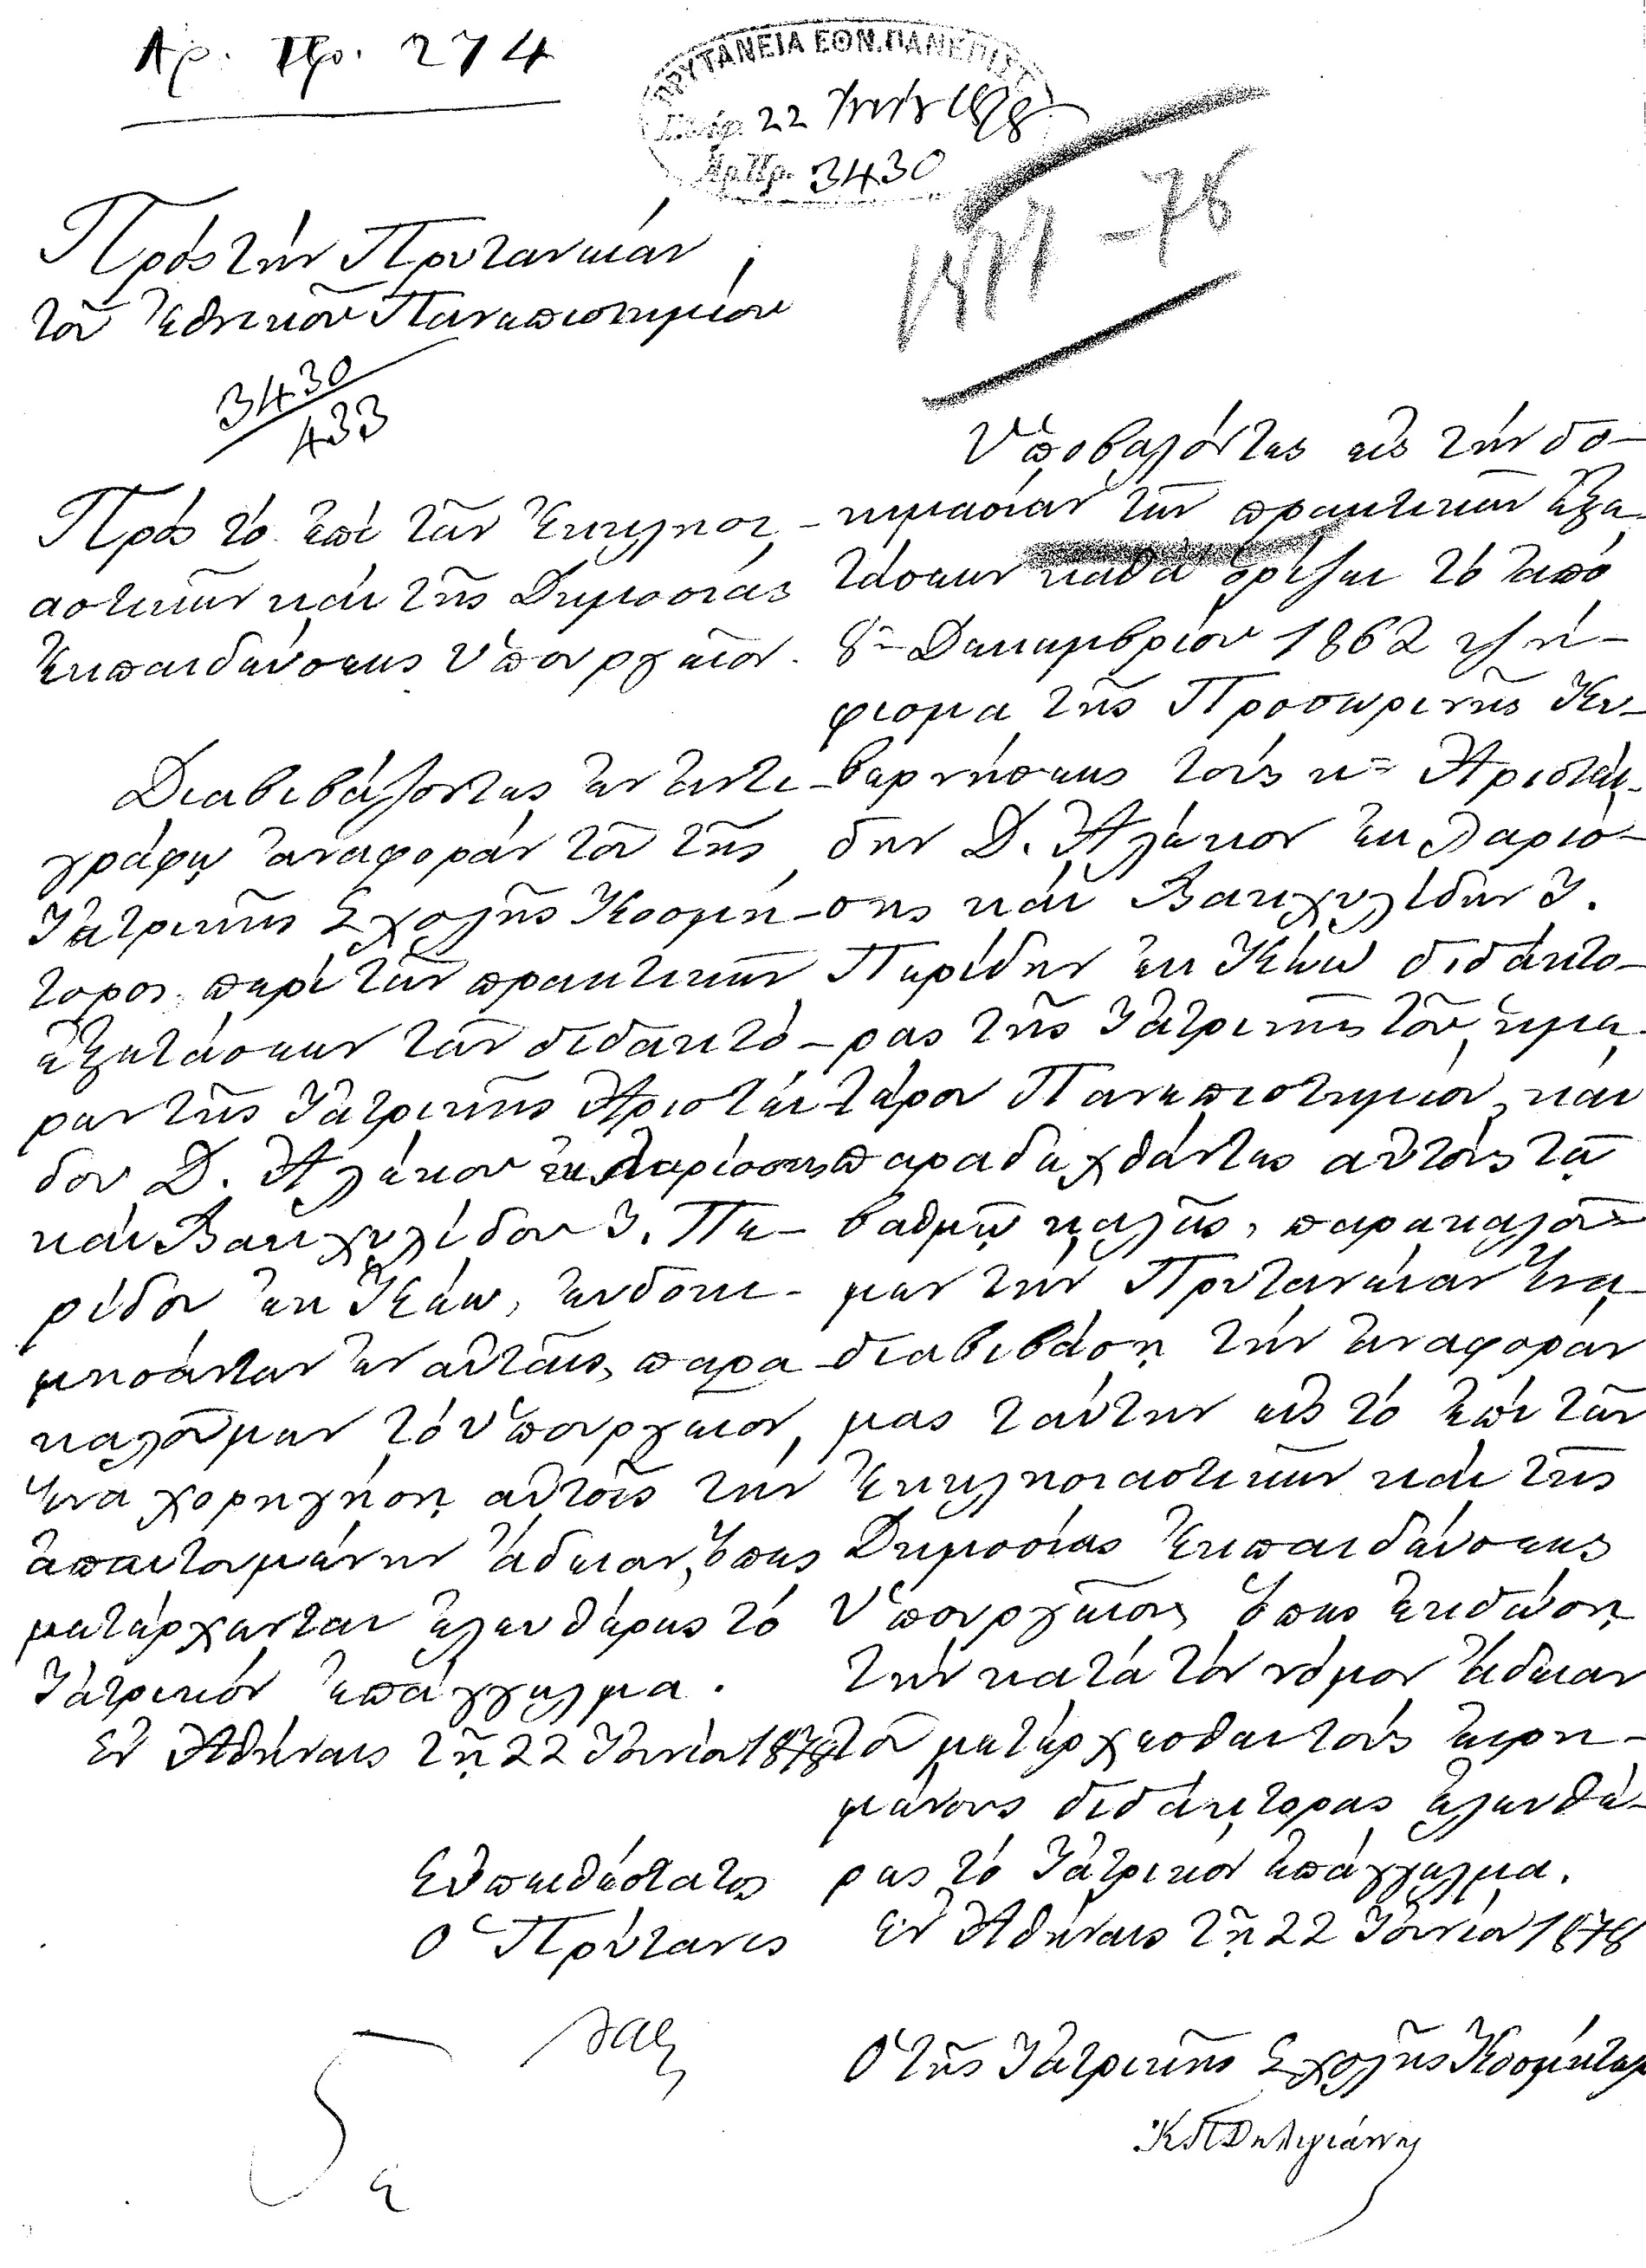 Ἀρ. Πρ. 274
ΠΡΥΤΑΝΕΙΑ ΕΘΝ. ΠΑΝΕΠΙΣΤ
22
Ἀρ. Πρ. 3430
1877-78
Πρὸς τὴν Πρυτανείαν
τοῦ Ἐθνικοῦ Πανεπιστημίου
3430
433
Πρὸς τὸ ἐπὶ τῶν Ἐκκλησι-
αστικῶν καὶ τῆς Δημοσίας
Ἐκπαιδεύσεως Ὑπουργεῖον.
Διαβιβάζοντες ἐν ἀντι-
γράφῳ ἀναφορὰν τοῦ τῆς
Ἰατρικῆς Σχολῆς Κοσμή-
τορος, περὶ τῶν πρακτικῶν
ἐξετάσεων τῶν διδακτό-
ρων τῆς Ἰατρικῆς Ἀριστεί-
δου Δ. Ἀλεκίου ἐκ Λαρίσσης
καὶ Βακχυλίδου Ι. Πε-
ρίδου ἐκ Κέω, εὐδοκι-
μησάντων ἐν αὐταῖς, παρα-
καλοῦμεν τὸ Ὑπουργεῖον,
ἵνα χορηγήσῃ αὐτοῖς τὴν
ἀπαιτουμένην ἄδειαν, ὅπως
μετέρχωνται ἐλευθέρως τὸ
Ἰατρικὸν ἐπάγγελμα.
Ἐν Ἀθήναις τῇ 22 Ἰουνίου 1878
Εὐπειθέστατος
Ὁ Πρύτανις
Ὑποβαλόντες εἰς τὴν δο-
κιμασίαν τῶν πρακτικῶν ἐξε-
τάσεων καθὰ ὁρίζει τὸ ἀπὸ
8ῃ Δεκεμβρίου 1862 ψή-
φισμα τῆς Προσωρινῆς Κυ-
βερνήσεως τοὺς κ. Ἀριστεί-
δην Δ. Ἀλέκιον ἐκ Λαρίσ-
σης καὶ Βακχυλίδην Ι.
Περίδην ἐκ Κέω διδάκτο-
ρας τῆς Ἰατρικῆς τοῦ ἡμε-
τέρου Πανεπιστημίου, καὶ
παραδεχθέντες αὐτοὺς τῷ
βαθμῷ καλῶς, παρακαλοῦ-
μεν τὴν Πρυτανείαν ἵνα
διαβιβάσῃ τὴν ἀναφοράν
μας ταύτην εἰς τὸ ἐπὶ τῶν
Ἐκκλησιαστικῶν καὶ τῆς
Δημοσίας Ἐκπαιδεύσεως
Ὑπουργεῖον, ὅπως ἐκδώσῃ
τὴν κατὰ τὸν νόμον ἄδειαν
τοῦ μετέρχεσθαι τοὺς εἰρη-
μένους διδάκτορας ἐλευθέ-
ρως τὸ Ἰατρικὸν ἐπάγγελμα.
Ἐν Ἀθήναις τῇ 22 Ἰουνίου 1878
Ὁ τῆς Ἰατρικῆς Σχολῆς Κοσμήτωρ
Κ Π Δηλιγιάννης